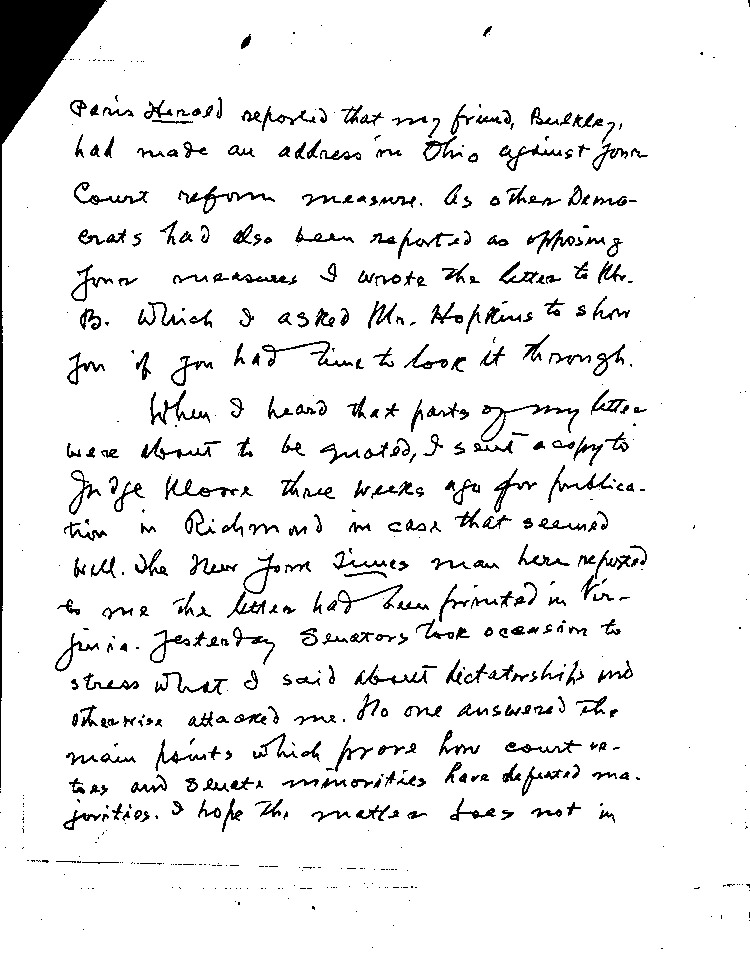 Paris Herald reported that my friend, Bulkley,
had made an address in Ohio against your
Court reform measure. As other Demo-
crats had also been reported as opposing
your measures I wrote the letter to Mr.
B. which I asked Mr. Hopkins to show
you if you had time to look it through.
When I heard that parts of my letter
were about to be quoted, I sent a copy to
Judge Moore three weeks ago for publica-
tion in Richmond in case that seemed
well. The New York Times man here reported
to me the letter had been printed in Vir-
ginia. Yesterday Senators took occasion to
stress what I said about dictatorships and
otherwise attacked me. No one answered the
main points which prove how court ve-
toes and Senate minorities have defeated ma-
jorities. I hope the matter does not in